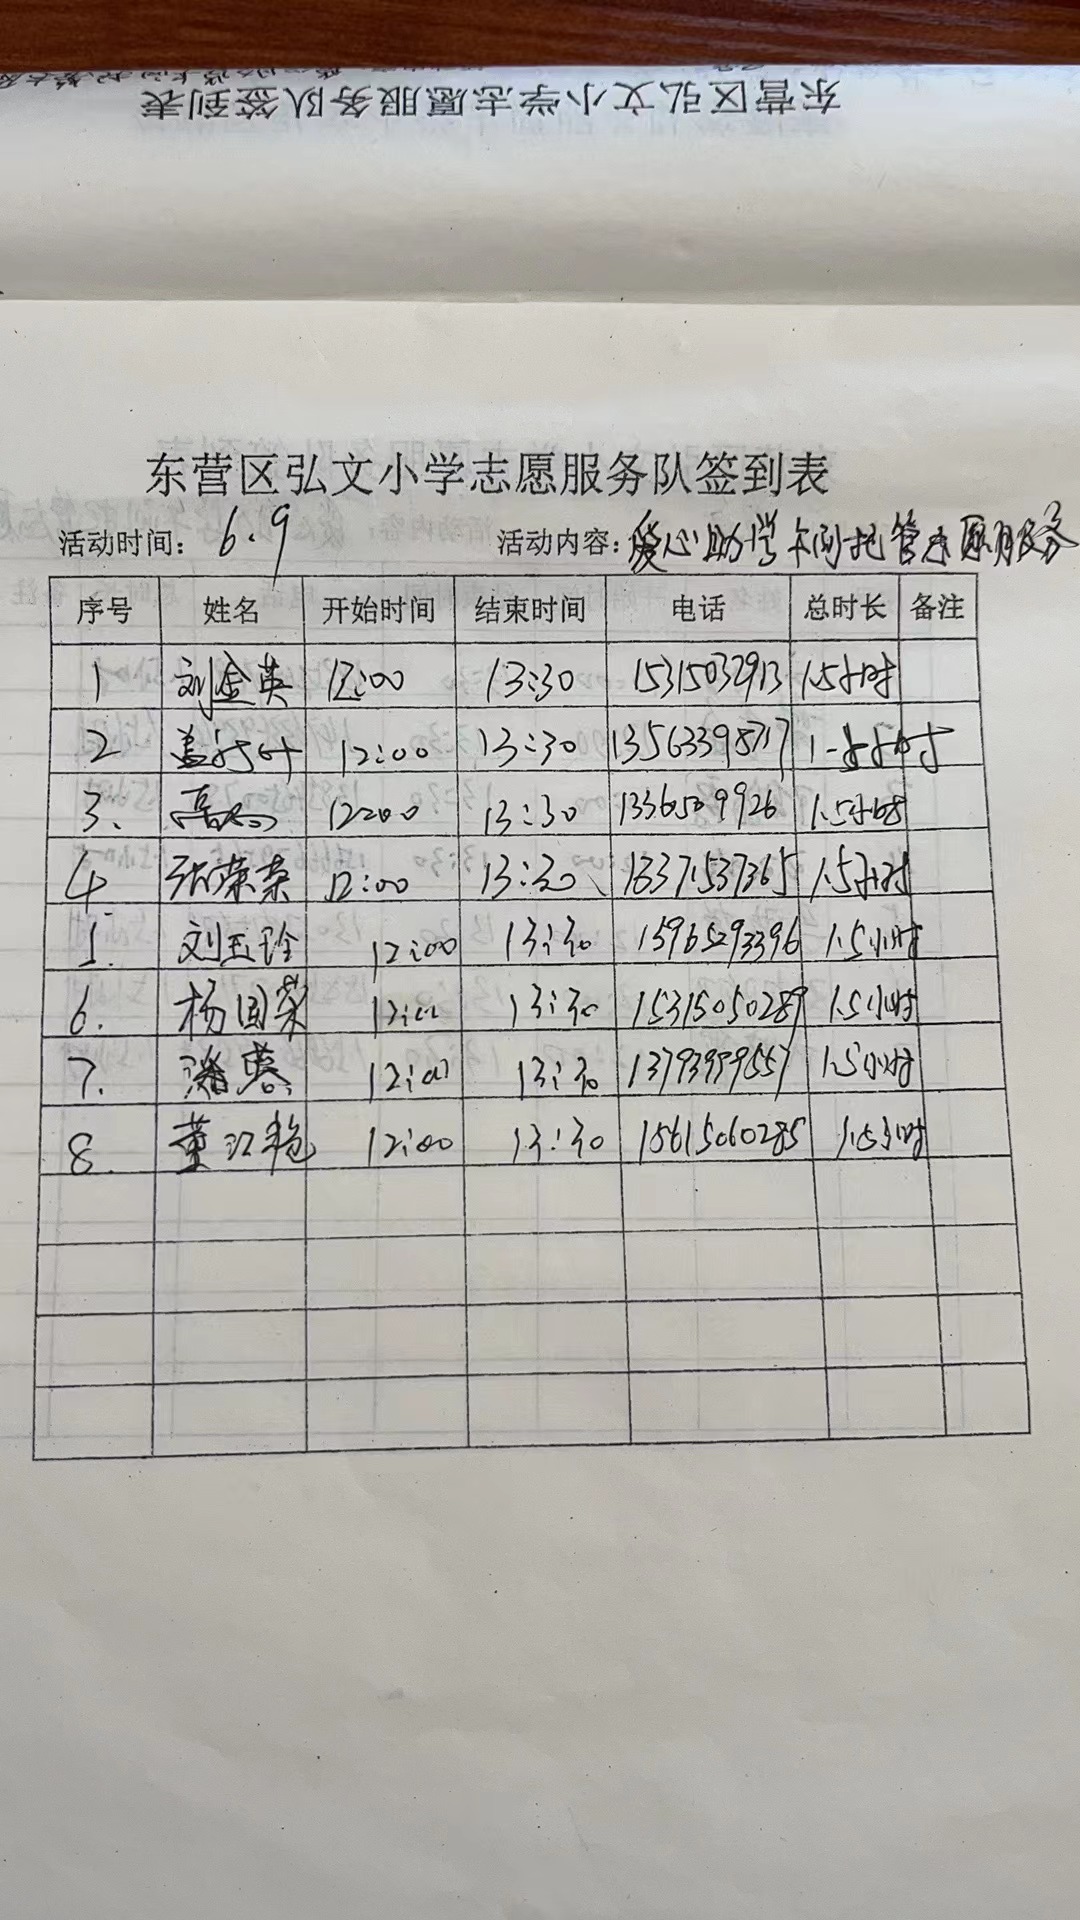 东营区弘文小学志愿服务队签到表
东营区弘文小学志愿服务队签到表
活动时间：6.9 活动内容：爱心助学午间托管志愿服务
序号 姓名 开始时间 结束时间 电话 总时长 备注
1 刘金英 12:00 13:30 15315032913 1.5小时
2 12:00 13:30 1.5小时
3. 12:00 13:30 13365309926 1.5小时
4 张荣荣 12:00 13:30 13371537365 1.5小时
5. 刘玉铨 12:00 13:30 15965293396 1.5小时
6. 杨国荣 12:00 13:30 15315050289 1.5小时
7. 潘蓉 12:00 13:30 13793999557 1.5小时
8. 董江艳 12:00 13:30 15615060285 1.5小时